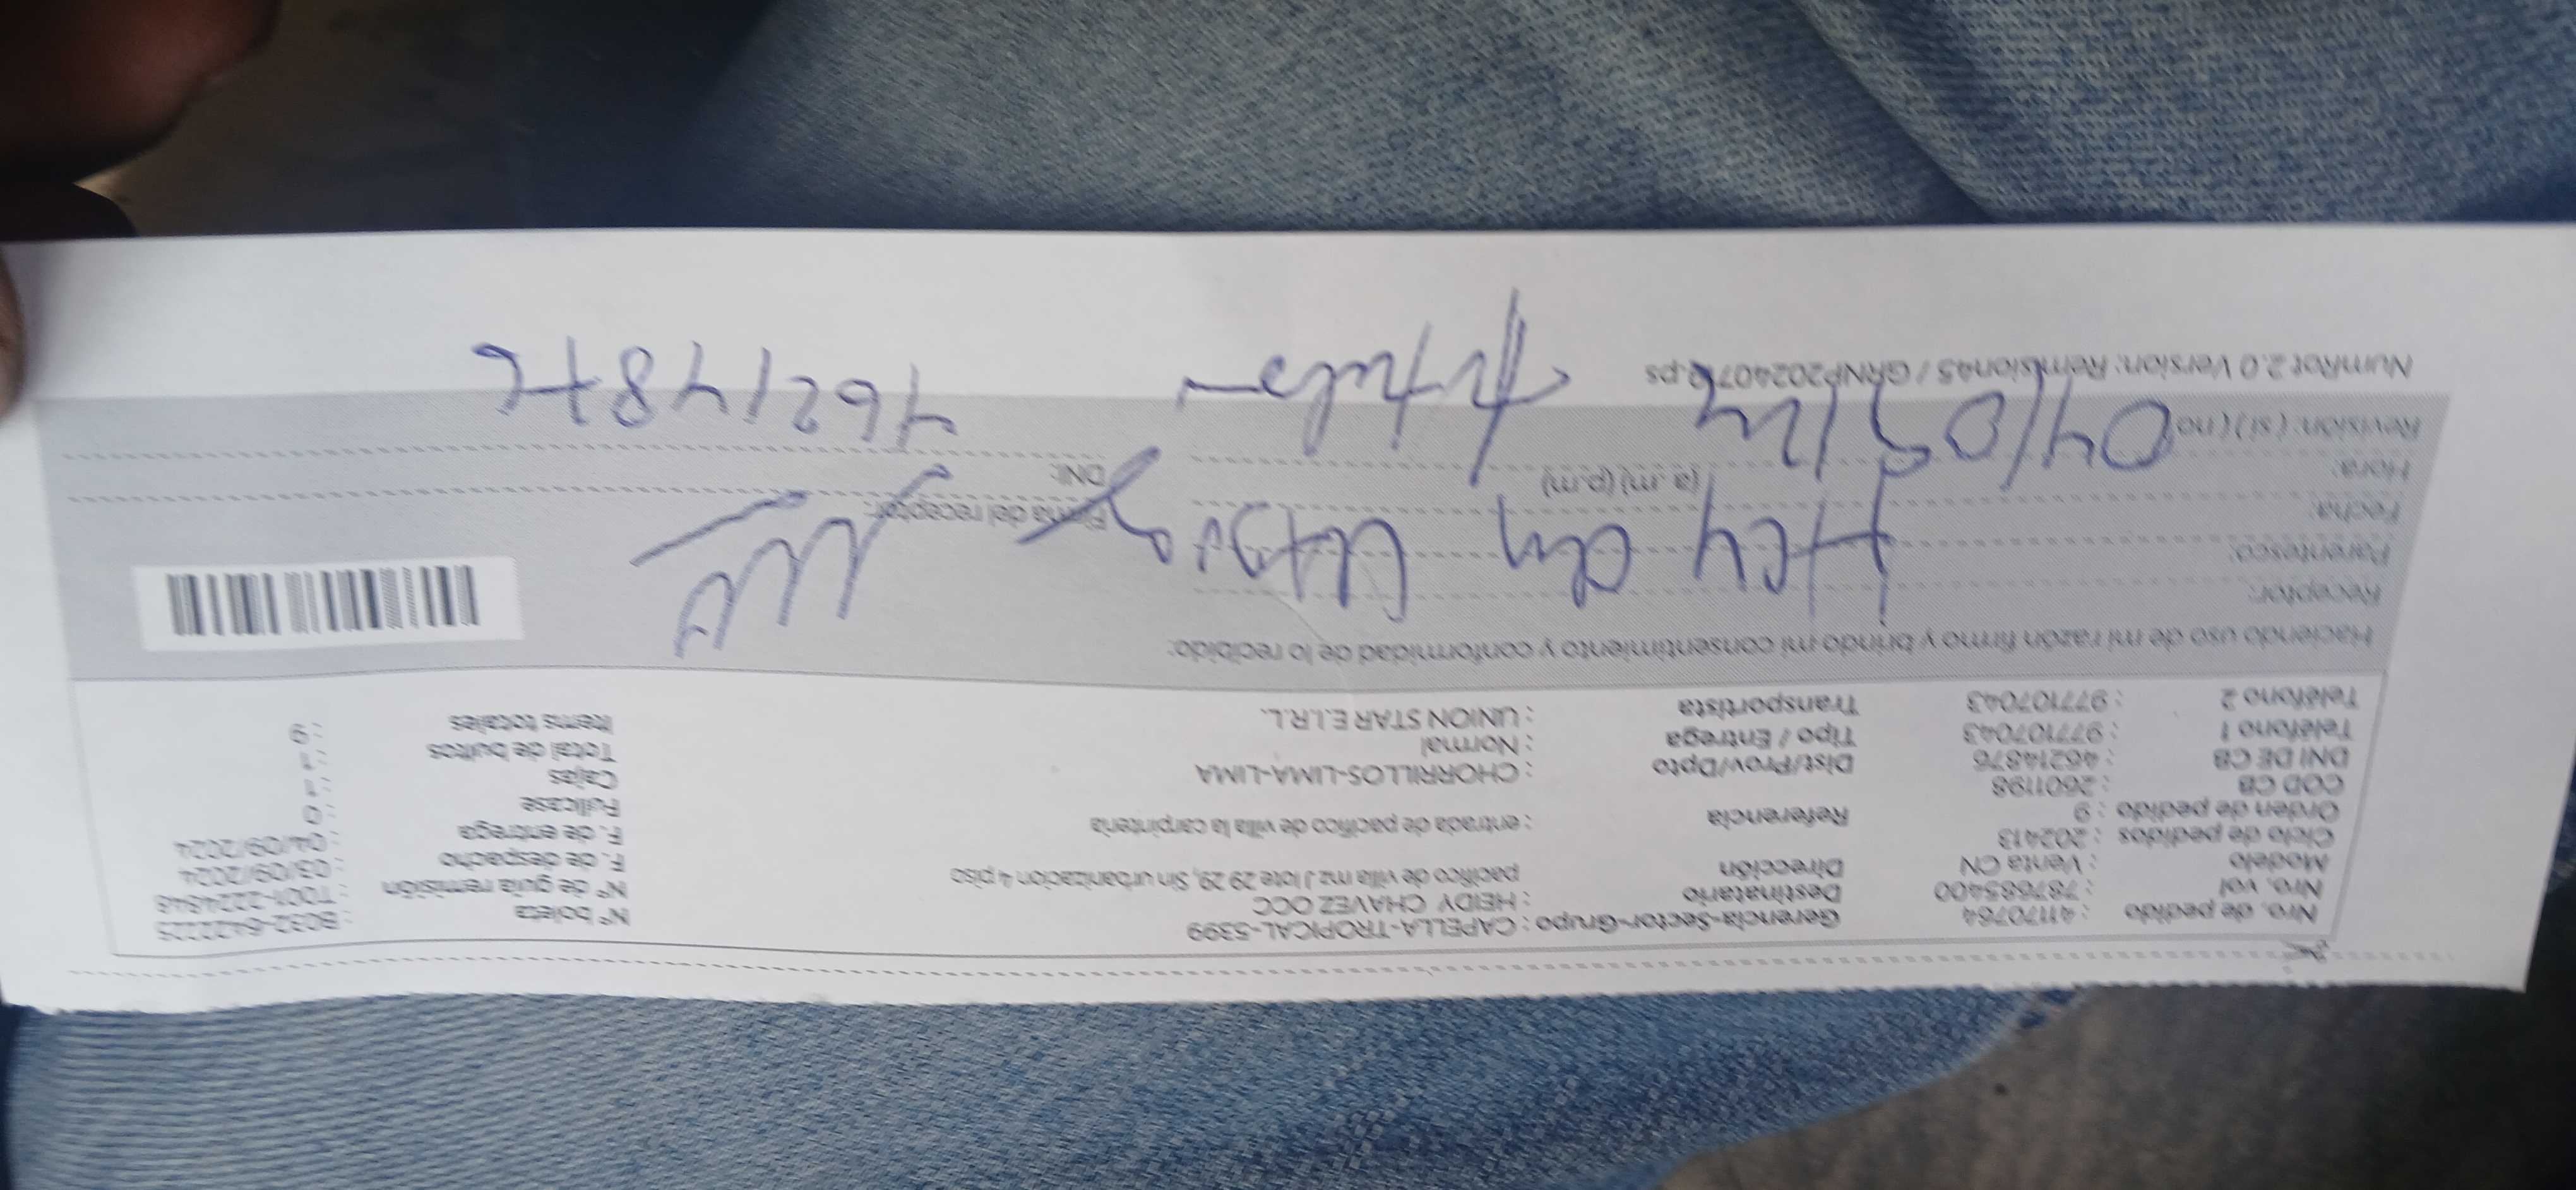 Nro. de pedido : 41170764 Gerencia-Sector-Grupo : CAPELLA-TROPICAL-5399 N° boleta : B032-6422225
Nro. vol : 787685400 Destinatario : HEIDY CHAVEZ OCC N° de guía remisión : T001-2224848
Modelo : Venta CN Dirección pacifico de villa mz J lote 29 29, Sin urbanizacion 4 piso F. de despacho : 03/09/2024
Ciclo de pedidos : 202413 F. de entrega : 04/09/2024
Orden de pedido : 9 Referencia : entrada de pacifico de villa la carpinteria Fullcase : 0
COD CB : 2601198 Cajas : 1
DNI DE CB : 46214876 Dist/Prov/Dpto : CHORRILLOS-LIMA-LIMA Total de bultos : 1
Teléfono 1 : 977107043 Tipo / Entrega : Normal Items totales : 9
Teléfono 2 : 977107043 Transportista : UNION STAR E.I.R.L.
Haciendo uso de mi razón firmo y brindo mi consentimiento y conformidad de lo recibido:
Receptor:
Parentesco:
Fecha: Firma del receptor:
Hora: (a. m) (p.m) DNI:
Revisión: ( si ) ( no
04/09/24 Titular 46214876
NumRot 2.0 Version: Remision45 / GRNP202407